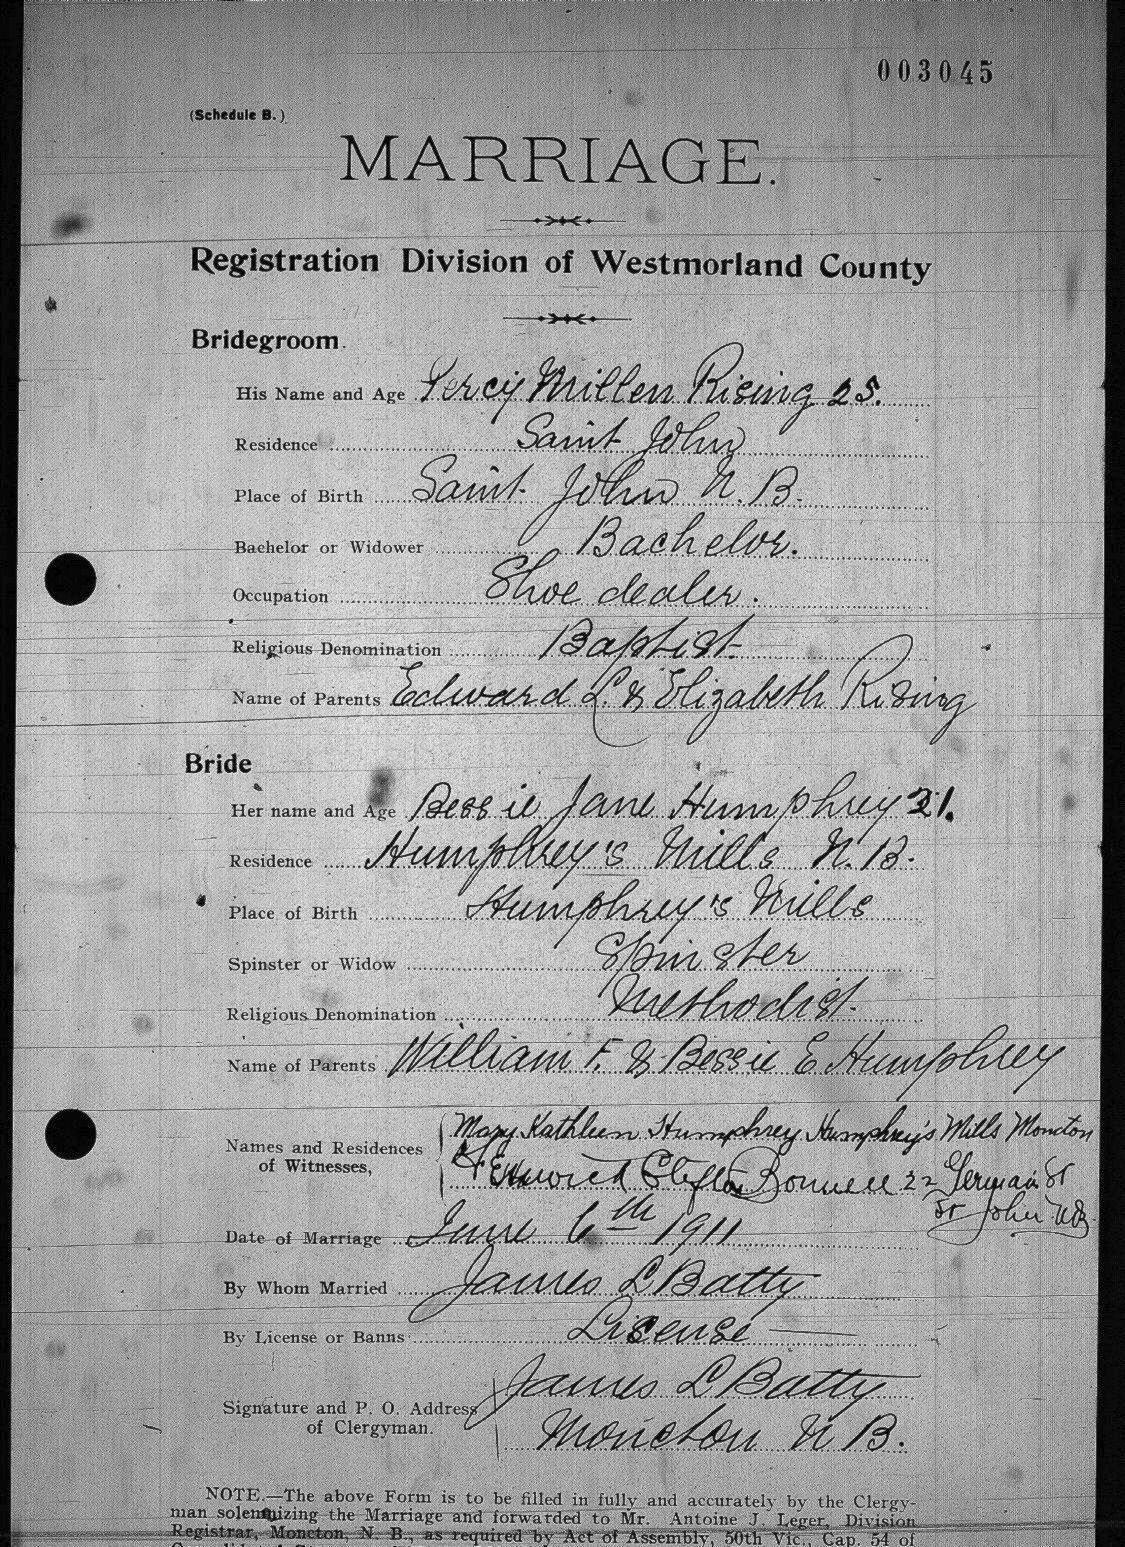 003045
(Schedule B.)
MARRIAGE.
Registration Division of Westmorland County
Bridegroom.
His Name and Age Percy Millen Rising 25.
Residence Saint John
Place of Birth Saint John N. B.
Bachelor or Widower Bachelor.
Occupation Shoe dealer.
Religious Denomination Baptist
Name of Parents Edward L. & Elizabeth Rising
Bride
Her name and Age Bessie Jane Humphrey 21.
Residence Humphrey's Mills N. B.
Place of Birth Humphrey's Mills
Spinster or Widow Spinster
Religious Denomination Methodist
Name of Parents William F. & Bessie E Humphrey
Names and Residences of Witnesses, Mary Kathleen Humphrey Humphrey's Mills Moncton
& Clifton Bonnell 22 Germain St
St John NB.
Date of Marriage June 6th 1911
By Whom Married James L Batty
By License or Banns License
Signature and P. O. Address of Clergyman. James L Batty
Moncton N B.
NOTE.—The above Form is to be filled in fully and accurately by the Clergy-
man solemnizing the Marriage and forwarded to Mr. Antoine J. Leger, Division
Registrar, Moncton, N. B., as required by Act of Assembly, 50th Vic., Cap. 54 of